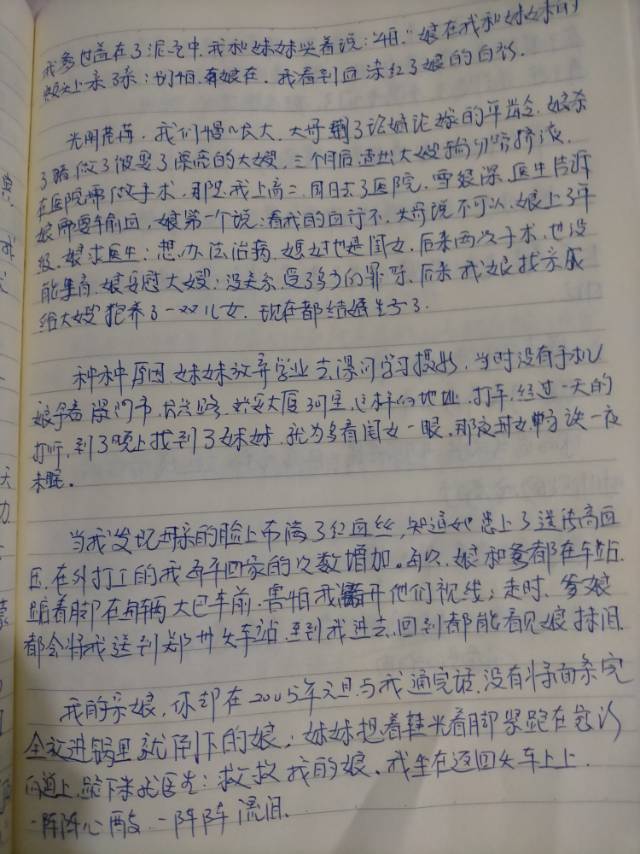 我爹也盖在了泥之中.我和妹妹哭着说:怕."娘在我和妹妹的
头上亲了亲:别怕.有娘在.我看到血染红了娘的白衫.
光阴荏苒.我们慢慢长大.大哥到了谈婚论嫁的年龄.娘杀
了猪做了被娶了深房的大嫂.三个月后.大嫂
在医院做手术.那是我上高二.周日去了医院.雪很深.医生告诉
娘需要输血,娘第一个说:看我的血行不.大哥说不可以.娘上了年
级.娘求医生:想办法治病.媳妇也是闺女.后来两次手术.也没
能生育.娘安慰大嫂:没关系.受了多少的罪呀.后来我娘找亲戚
给大嫂抱养了一双儿女.现在都结婚生子了.
种种原因.妹妹放弃学业去学习摄影.当时没有手机
娘拿着厦门市.大厦这样的地址.打车.经过一天的
打听.到了晚上找到了妹妹.就为多看闺女一眼.那夜母女俩谈一夜
未眠.
当我发现母亲的脸上布满了红血丝,知道她患上了遗传高血
压.在外打工的我每年回家的次数增加.每次.娘和爹都在车站
踮着脚在每辆大巴车前.害怕我离开他们视线;走时.爹娘
都会将我送到郑州火车站.直到我进去.回头都能看见娘抹泪.
我的亲娘.你却在2005年元旦与我通完话.没有将面条完
全放进锅里就倒下的娘;妹妹提着鞋光着脚紧跟在急诊
向道上.跪下来求医生:救救我的娘.我坐在返回火车上上.
一阵阵心酸.一阵阵流泪.